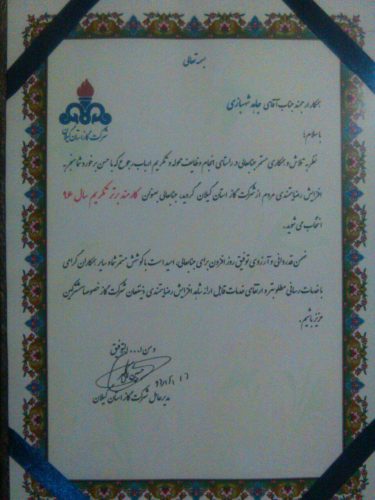 بسمه تعالی
شرکت گاز استان گیلان
همکار ارجمند جناب آقای جاهد شهبازی
با سلام،
نظر به تلاش و همکاری مستمر جنابعالی در راستای انجام وظایف محوله و تکریم ارباب رجوع که با حسن برخورد شما منجر به
افزایش رضایتمندی مردم از شرکت گاز استان گیلان گردید، جنابعالی بعنوان کارمند برتر تکریم سال ۹۶
انتخاب می شوید.
ضمن قدردانی و آرزوی توفیق روز افزون برای جنابعالی، امید است با کوشش مستمر شما و سایر همکاران گرامی
با خدمات رسانی مطلوبتر و ارتقای خدمات قابل ارائه شاهد افزایش رضایتمندی ذینفعان شرکت گاز خصوصا مشترکین
عزیز باشیم.
و من ا... التوفیق
مدیرعامل شرکت گاز استان گیلان